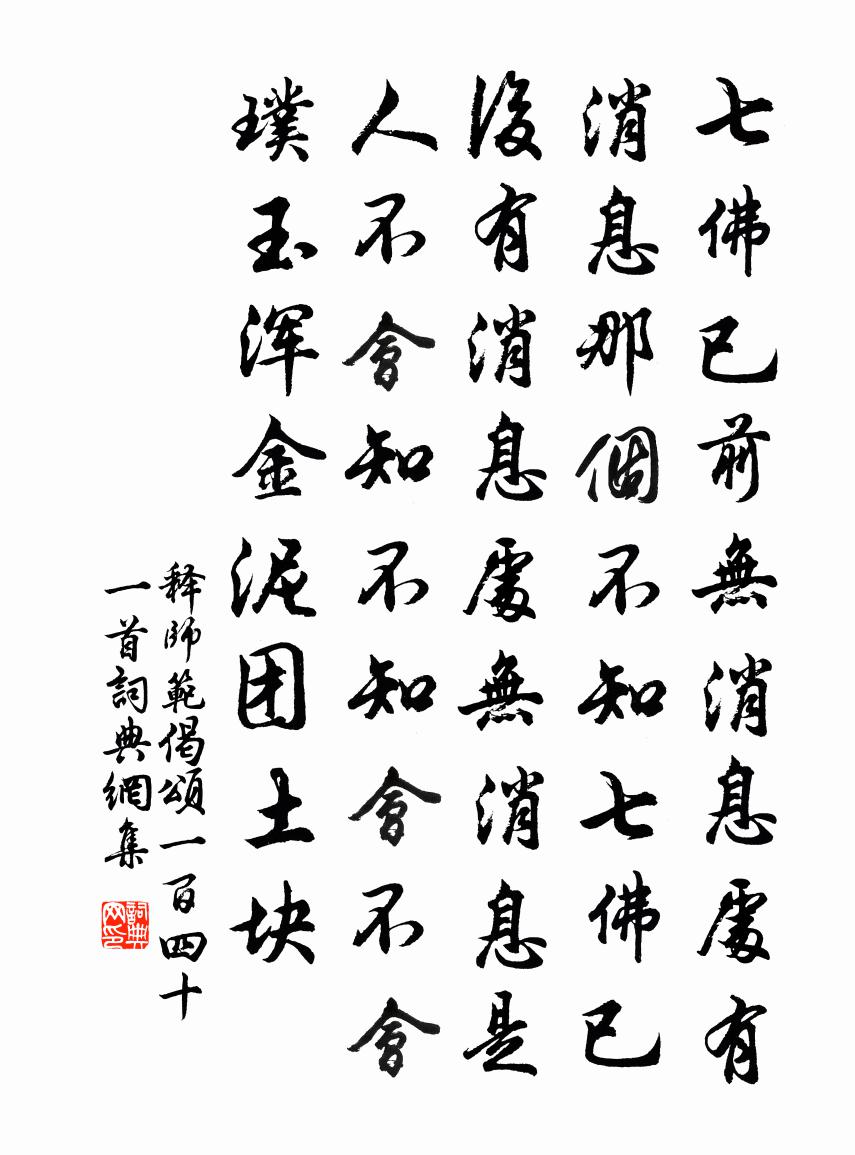 七佛已前無消息處有
消息那個不知七佛已
後有消息處無消息是
人不會知不知會不會
璞玉浑金泥团土块
释師範偈頌一百四十
一首詞典網集
詞典网印